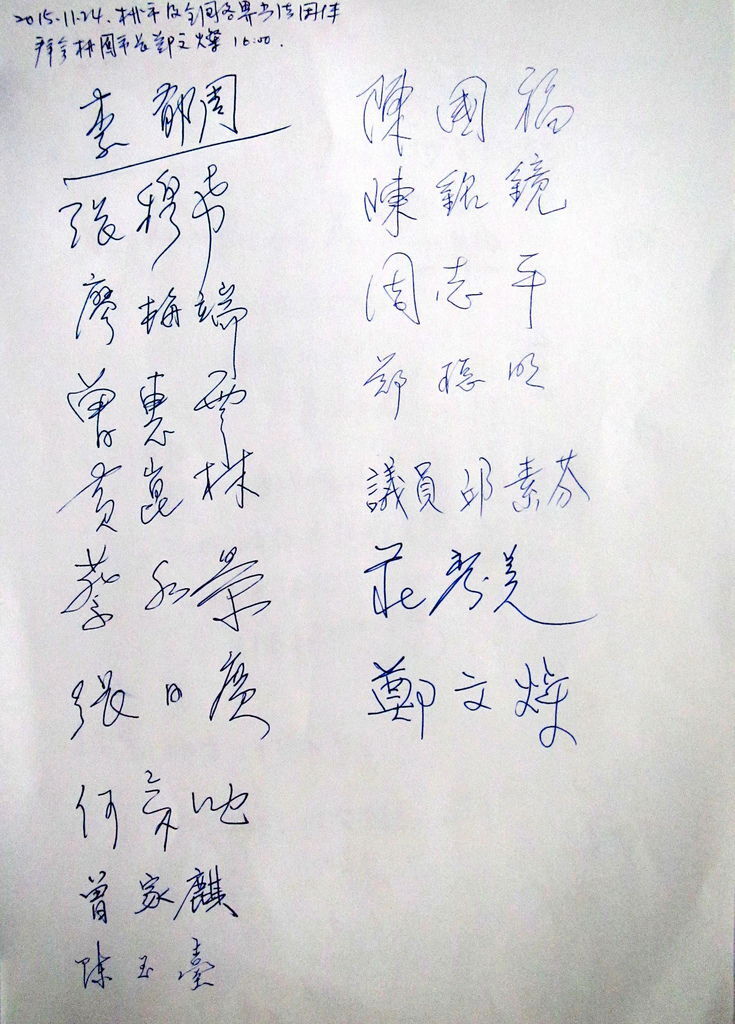 2015.11.24. 桃市及全國各界書法團体
拜會桃園市長鄭文燦 16:00.
李郁周
張穆希
廖梅端
曾惠雲
黃崑林
蔡永榮
張日廣
何亥
曾家麒
陳玉臺
陳國福
陳銘鏡
周志平
鄭穏明
議員邱素芬
莊秀美
鄭文燦